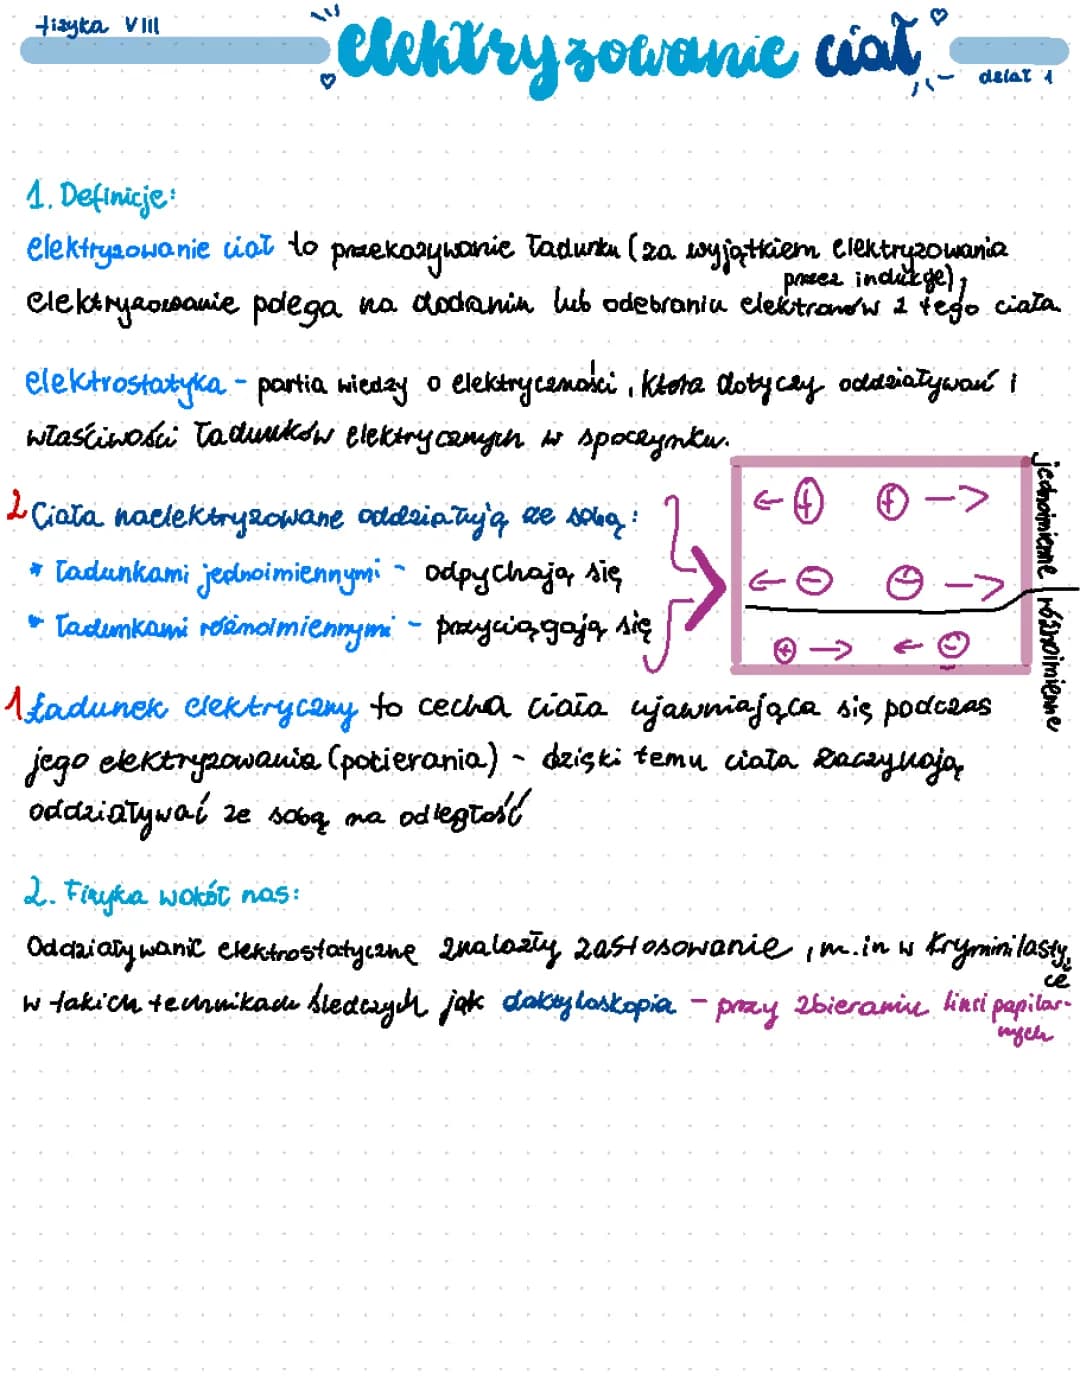 fizyka VIII
elektryzowanie ciał
dział 1
1. Definicje:
elektryzowanie ciał to przekazywanie ładunku (za wyjątkiem elektryzowania
przez indukcję),
elektryzowanie polega na dodaniu lub odebraniu elektronów z tego ciała.
elektrostatyka - partia wiedzy o elektryczności, która dotyczy oddziaływań i
właściwości ładunków elektrycznych w spoczynku.
2 Ciała naelektryzowane oddziałują ze sobą:
* ładunkami jednoimiennymi - odpychają się
* ładunkami różnoimiennymi - przyciągają się
← + + →
← - - →
+ → ← -
jednoimienne
różnoimienne
1 Ładunek elektryczny to cecha ciała ujawniająca się podczas
jego elektryzowania (pocierania) - dzięki temu ciała zaczynają
oddziaływać ze sobą na odległość
2. Fizyka wokół nas:
Oddziaływanie elektrostatyczne znalazły zastosowanie, m.in w kryminilasty,
ce
w takich technikach śledczych jak daktyloskopia - przy zbieraniu linii papilar-
nych